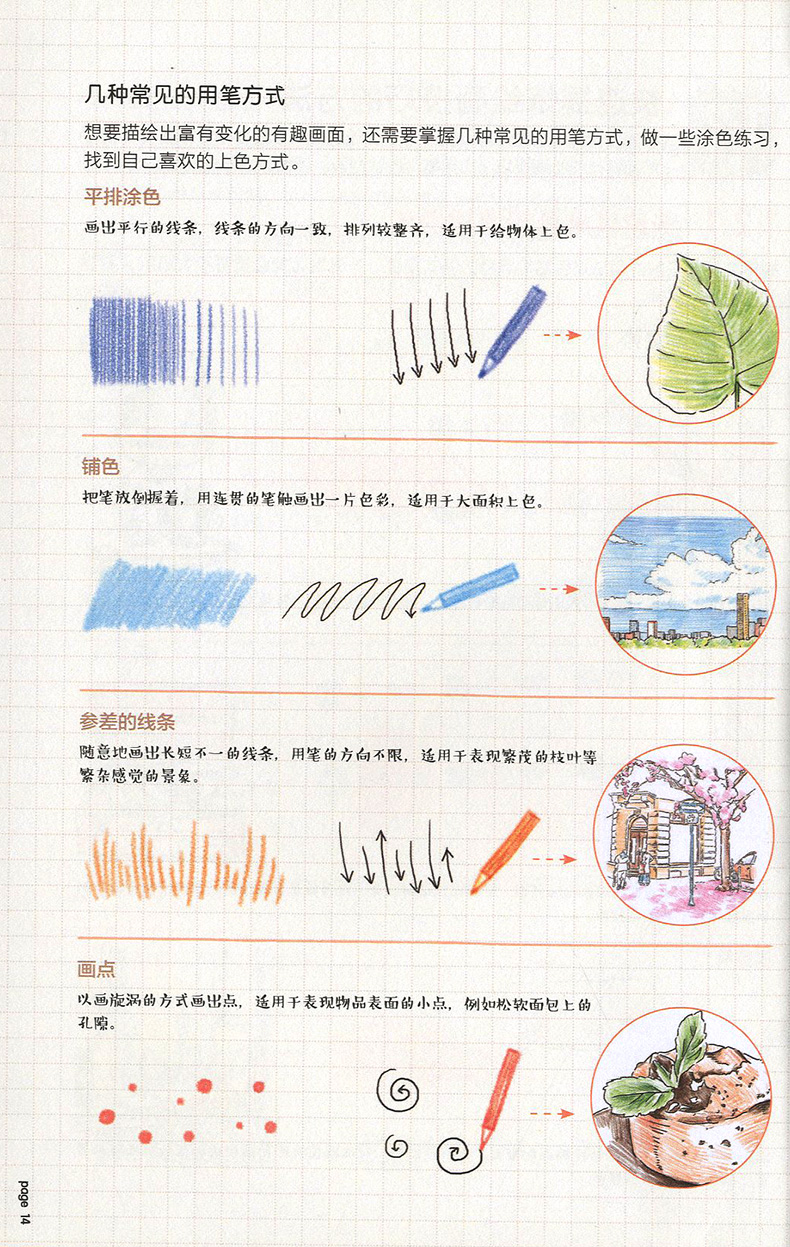 几种常见的用笔方式
想要描绘出富有变化的有趣画面，还需要掌握几种常见的用笔方式，做一些涂色练习，
找到自己喜欢的上色方式。
平排涂色
画出平行的线条，线条的方向一致，排列较整齐，适用于给物体上色。
铺色
把笔放倒握着，用连贯的笔触画出一片色彩，适用于大面积上色。
参差的线条
随意地画出长短不一的线条，用笔的方向不限，适用于表现繁茂的枝叶等
繁杂感觉的景象。
画点
以画旋涡的方式画出点，适用于表现物品表面的小点，例如松软面包上的
孔隙。
page 14